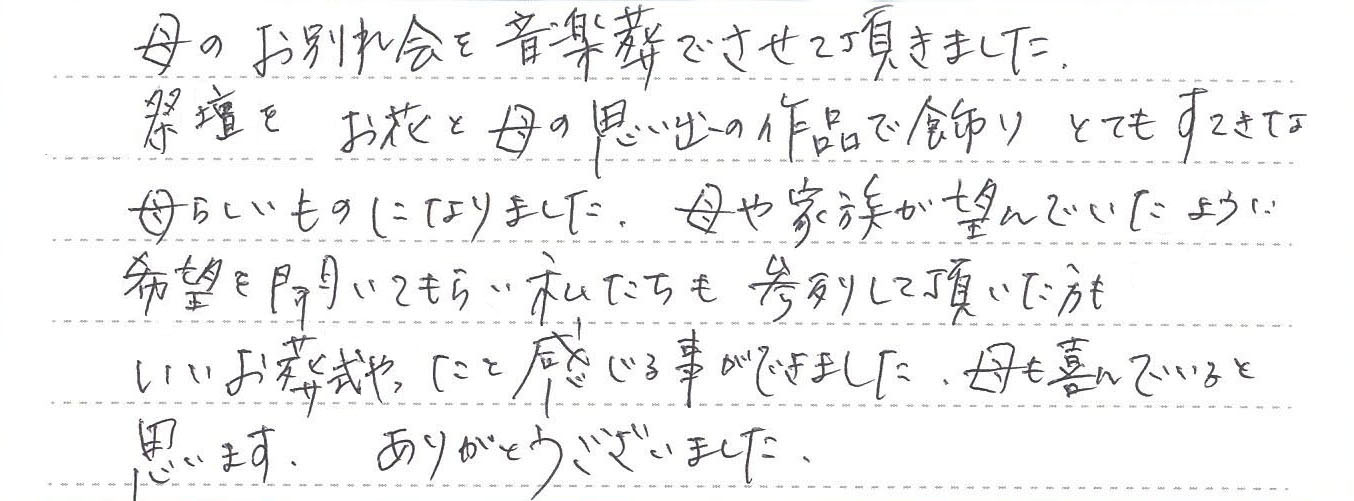 母のお別れ会を音楽葬でさせて頂きました.
祭壇を お花と母の思い出の作品で飾り とてもすてきな
母らしいものになりました. 母や家族が望んでいたように
希望を聞いてもらい私たちも 参列して頂いた方も
いいお葬式やったと感じる事ができました. 母も喜んでいると
思います. ありがとうございました.